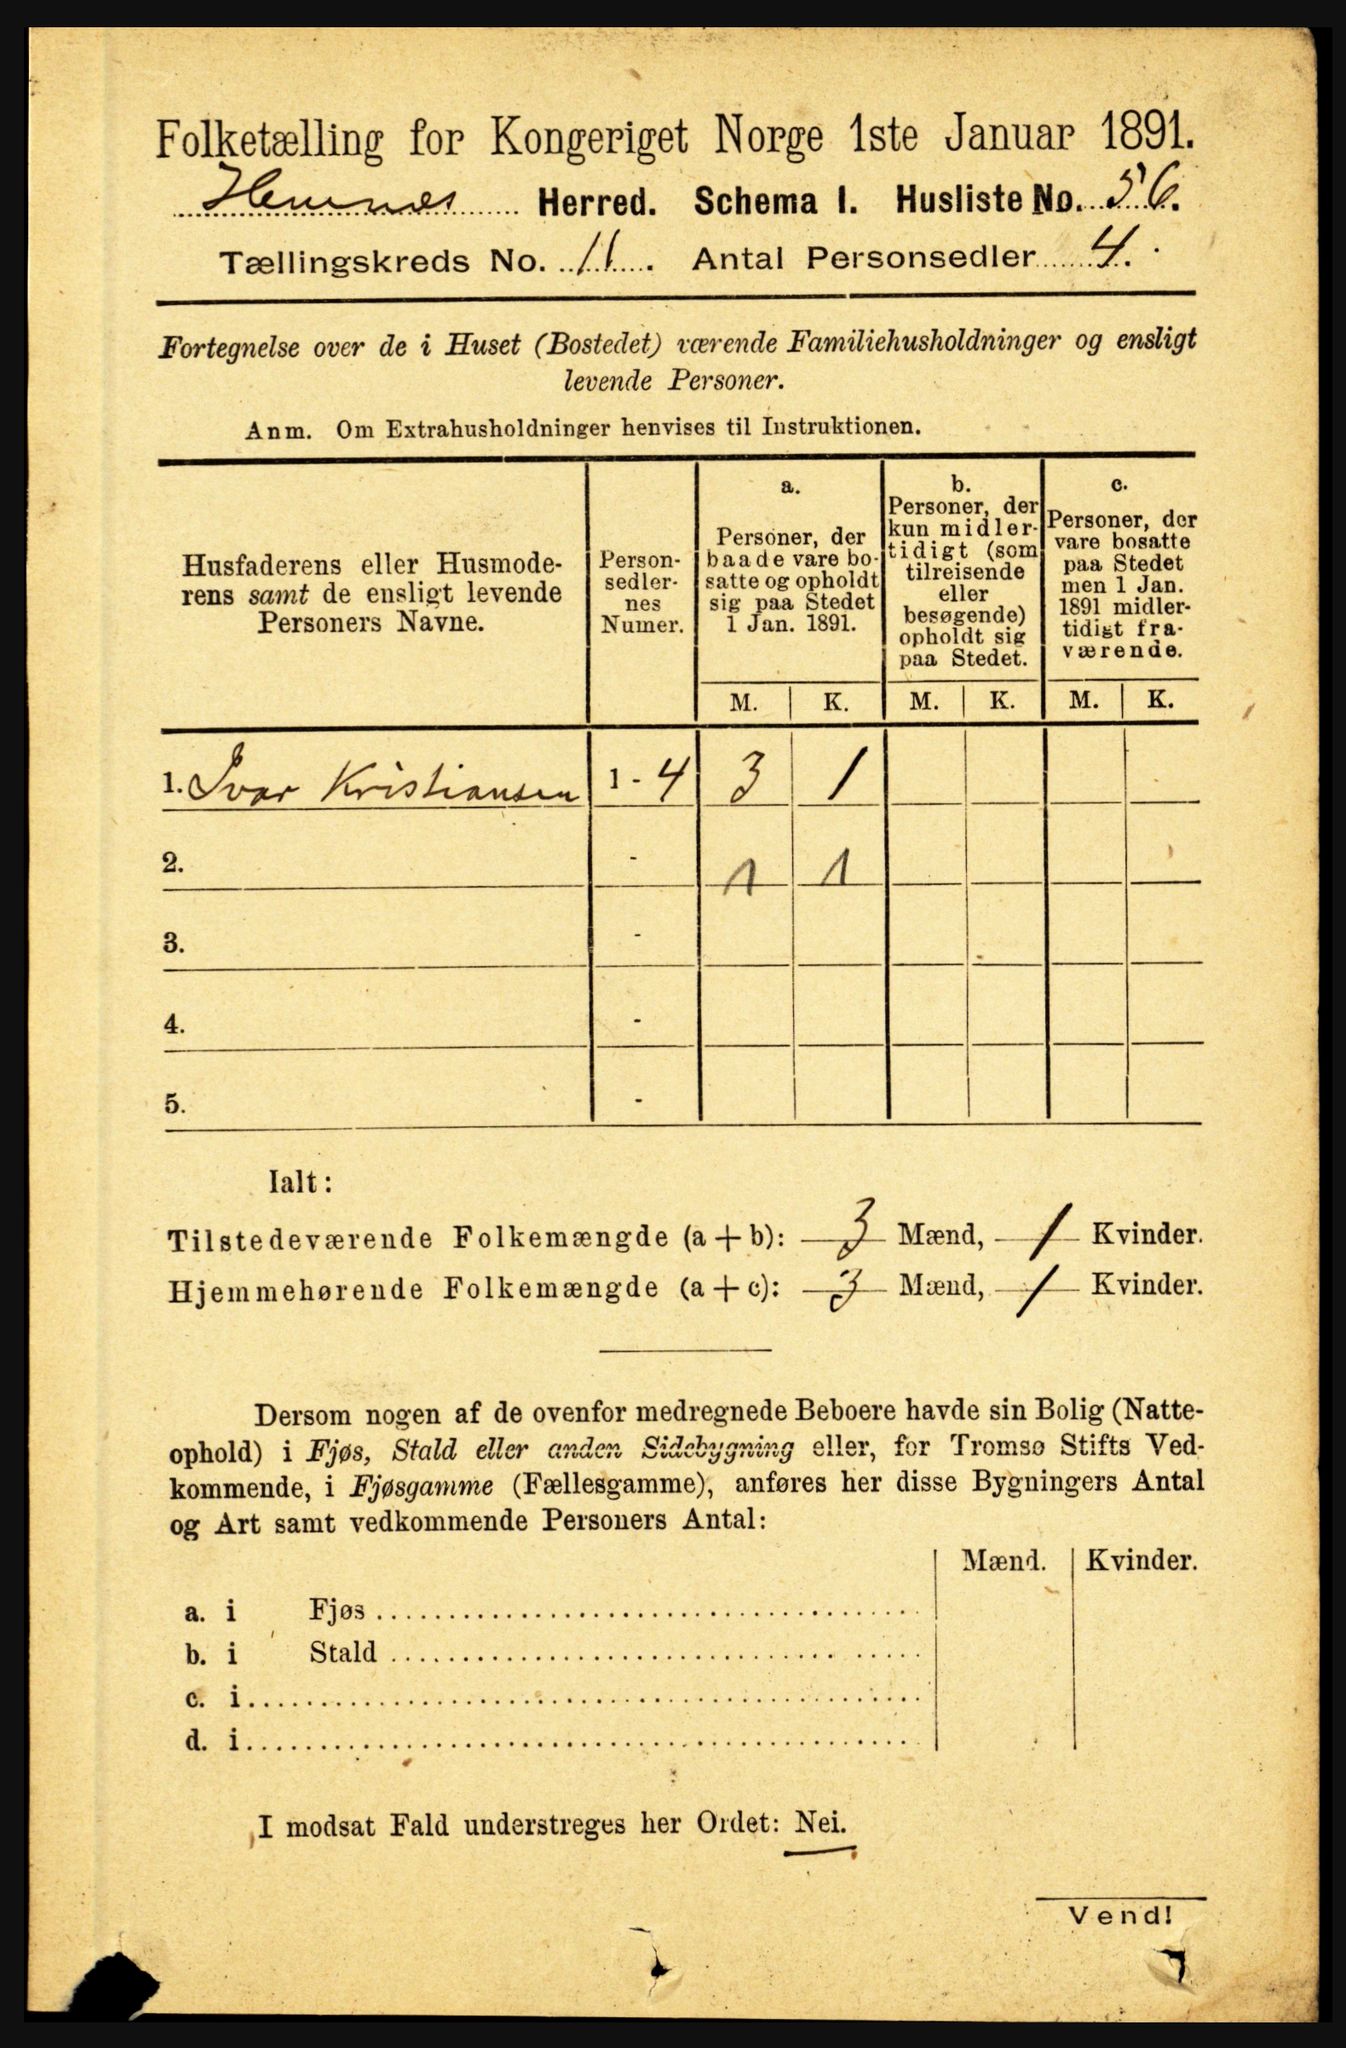 Folketælling for Kongeriget Norge 1ste Januar 1891.
Hemnes Herred. Schema I. Husliste No. 56.
Tællingskreds No. 11. Antal Personsedler 4.
Fortegnelse over de i Huset (Bostedet) værende Familiehusholdninger og ensligt
levende Personer.
Anm. Om Extrahusholdninger henvises til Instruktionen.
Husfaderens eller Husmode-
rens samt de ensligt levende
Personers Navne.
Person-
sedler-
nes
Numer.
a.
Personer, der
baade vare bo-
satte og opholdt
sig paa Stedet
1 Jan. 1891.
b.
Personer, der
kun midler-
tidigt (som
tilreisende
eller
besøgende)
opholdt sig
paa Stedet.
c.
Personer, der
vare bosatte
paa Stedet
men 1 Jan.
1891 midler-
tidigt fra-
værende.
M. K. M. K. M. K.
1. Ivar Kristiansen 1 - 4 3 1
2. - 1 1
3. -
4. -
5. -
Ialt:
Tilstedeværende Folkemængde (a + b): 3 Mænd, 1 Kvinder.
Hjemmehørende Folkemængde (a + c): 3 Mænd, 1 Kvinder.
Dersom nogen af de ovenfor medregnede Beboere havde sin Bolig (Natte-
ophold) i Fjøs, Stald eller anden Sidebygning eller, for Tromsø Stifts Ved-
kommende, i Fjøsgamme (Fællesgamme), anføres her disse Bygningers Antal
og Art samt vedkommende Personers Antal:
Mænd. Kvinder.
a. i Fjøs
b. i Stald
c. i
d. i
I modsat Fald understreges her Ordet: Nei.
Vend!